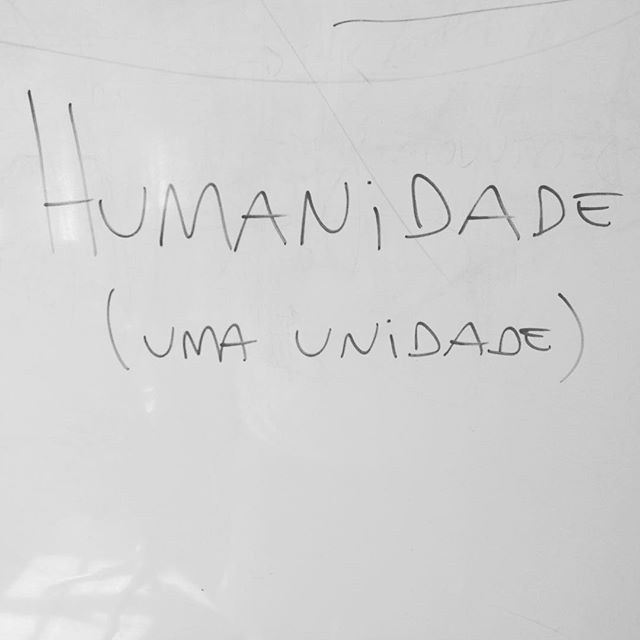 HUMANiDADE
(UMA UNiDADE)